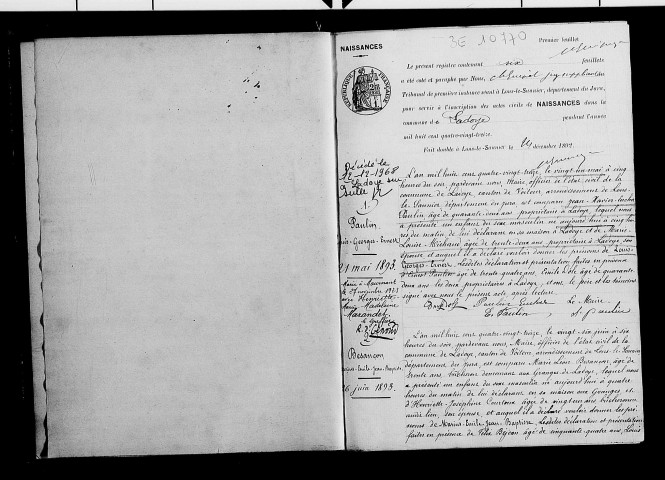 3E 10770
Premier feuillet
NAISSANCES
Le présent registre contenant six feuillets
a été coté et paraphé par Nous,
Tribunal de première instance séant à Lons-le-Saunier, département du Jura,
pour servir à l'inscription des actes civils de NAISSANCES dans la
commune de Ladoye pendant l'année
mil huit cent quatre-vingt-treize.
Fait double à Lons-le-Saunier le 14 décembre 1892.
RÉPUBLIQUE FRANÇAISE
Décédé le
12-12-1968
Ladoye sur
Seille
1.
Paulin
Georges-Ernest
21 mai 1893
Marié à
le 27 novembre 1921
avec Henriette
Marie Madeleine
Le Greffier
L'an mil huit cent quatre-vingt-treize, le vingt-un mai à cinq
heures du soir, pardevant nous, Maire, officier de l'état civil de la
commune de Ladoye, canton de Voiteur, arrondissement de Lons-
le-Saunier, département du Jura, est comparu Jean-Marie
Paulin, âgé de quarante-deux ans, propriétaire à Ladoye, lequel nous
a présenté un enfant du sexe masculin né aujourd'hui à cinq heu-
res du matin, de lui déclarant en sa maison à Ladoye et de Marie-
Louise Michaud âgée de trente-deux ans, propriétaire à Ladoye, son
épouse et auquel il a déclaré vouloir donner les prénoms de Louis-
Georges-Ernest. Lesdites déclaration et présentation faites en présence
d'Ernest Paulin âgé de trente-quatre ans, Emile âgé de quarante-
deux ans, les deux propriétaires à Ladoye, et ont le père et les témoins
signé avec nous le présent acte après lecture.
Paulin
Le Maire
E. Paulin
Besançon
Marius-Emile-Jean-Baptiste
26 juin 1893.
L'an mil huit cent quatre-vingt-treize, le vingt-six juin à six
heures du soir, pardevant nous, Maire, officier de l'état civil de la
commune de Ladoye, canton de Voiteur, arrondissement de Lons-le-Saunier
département du Jura, est comparu Marie Léon Besançon, âgé de
trente ans, bûcheron demeurant aux Granges-de-Ladoye, lequel nous
a présenté un enfant du sexe masculin né aujourd'hui à quatre
heures du matin de lui déclarant, en sa maison aux Granges et
d'Henriette-Joséphine âgée de vingt-un ans
audit lieu, son épouse, et auquel il a déclaré vouloir donner les pré-
noms de Marius-Emile-Jean-Baptiste. Lesdites déclaration et présentation
faites en présence de Félix âgé de cinquante-quatre ans, Louis